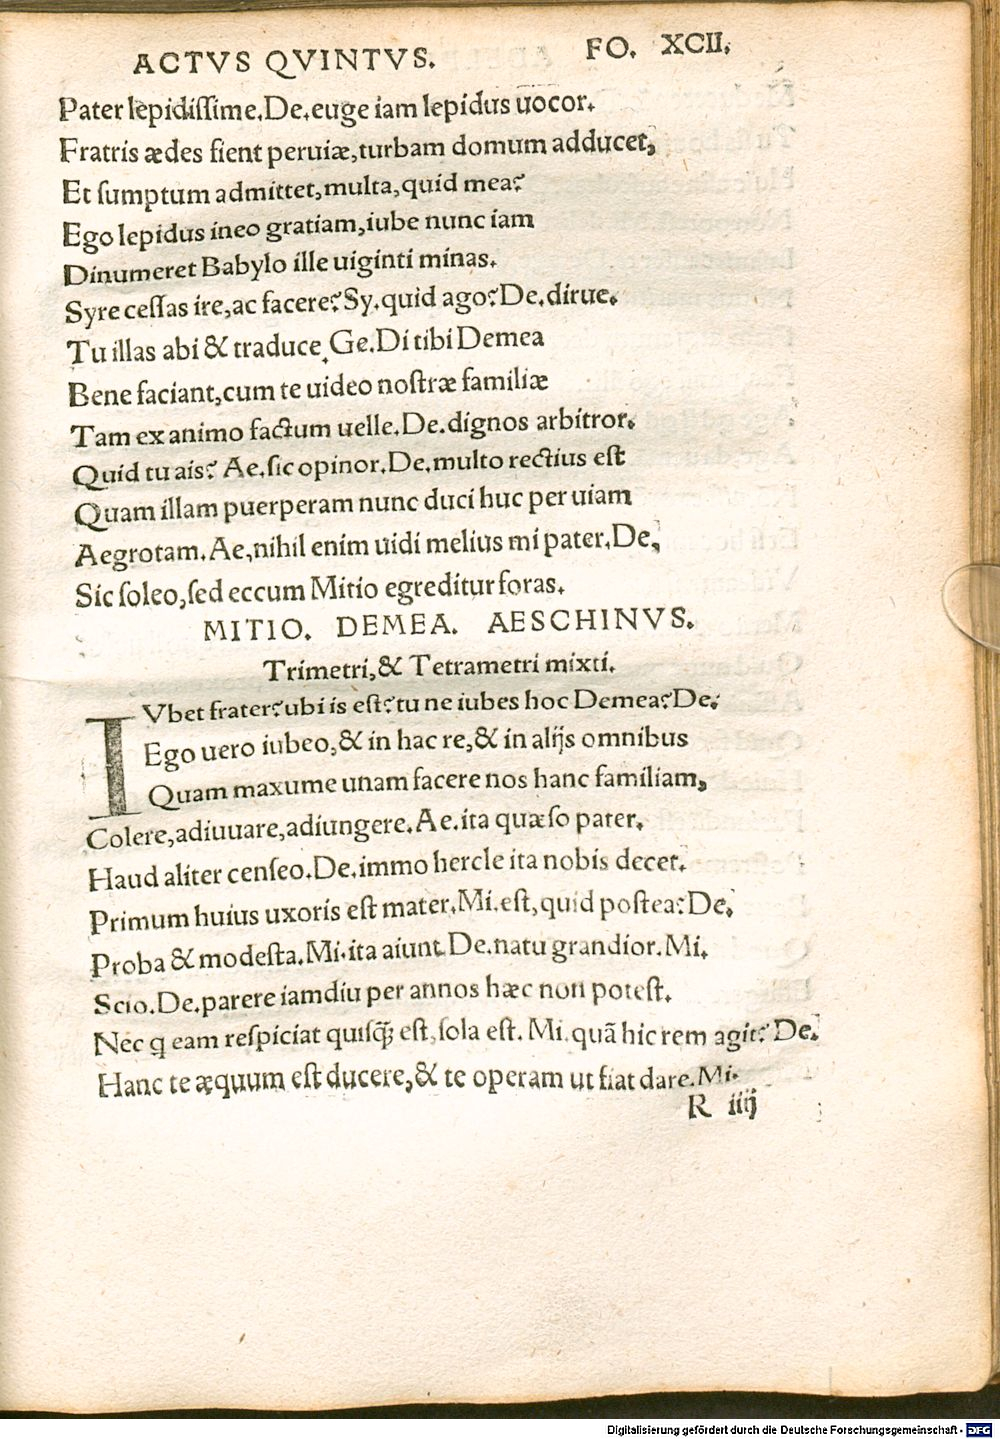 ACTVS QVINTVS. FO. XCII.
Pater lepidissime. De. euge iam lepidus uocor.
Fratris ædes fient peruiæ, turbam domum adducet,
Et sumptum admittet, multa, quid mea?
Ego lepidus ineo gratiam, iube nunc iam
Dinumeret Babylo ille uiginti minas.
Syre cessas ire, ac facere? Sy. quid ago? De. dirue.
Tu illas abi & traduce. Ge. Di tibi Demea
Bene faciant, cum te uideo nostræ familiæ
Tam ex animo factum uelle. De. dignos arbitror.
Quid tu ais? Ae. sic opinor. De. multo rectius est
Quam illam puerperam nunc duci huc per uiam
Aegrotam. Ae, nihil enim uidi melius mi pater. De,
Sic soleo, sed eccum Mitio egreditur foras.
MITIO. DEMEA. AESCHINVS.
Trimetri, & Tetrametri mixti.
IVbet frater? ubi is est? tu ne iubes hoc Demea? De.
Ego uero iubeo, & in hac re, & in alijs omnibus
Quam maxume unam facere nos hanc familiam,
Colere, adiuuare, adiungere. Ae. ita quæso pater.
Haud aliter censeo. De. immo hercle ita nobis decet.
Primum huius uxoris est mater. Mi. est, quid postea? De.
Proba & modesta. Mi. ita aiunt. De. natu grandior. Mi.
Scio. De. parere iamdiu per annos hæc non potest.
Nec q eam respiciat quisq̃; est, sola est. Mi. quã hic rem agit? De.
Hanc te æquum est ducere, & te operam ut fiat dare. Mi.
R iiij
Digitalisierung gefördert durch die Deutsche Forschungsgemeinschaft - DFG